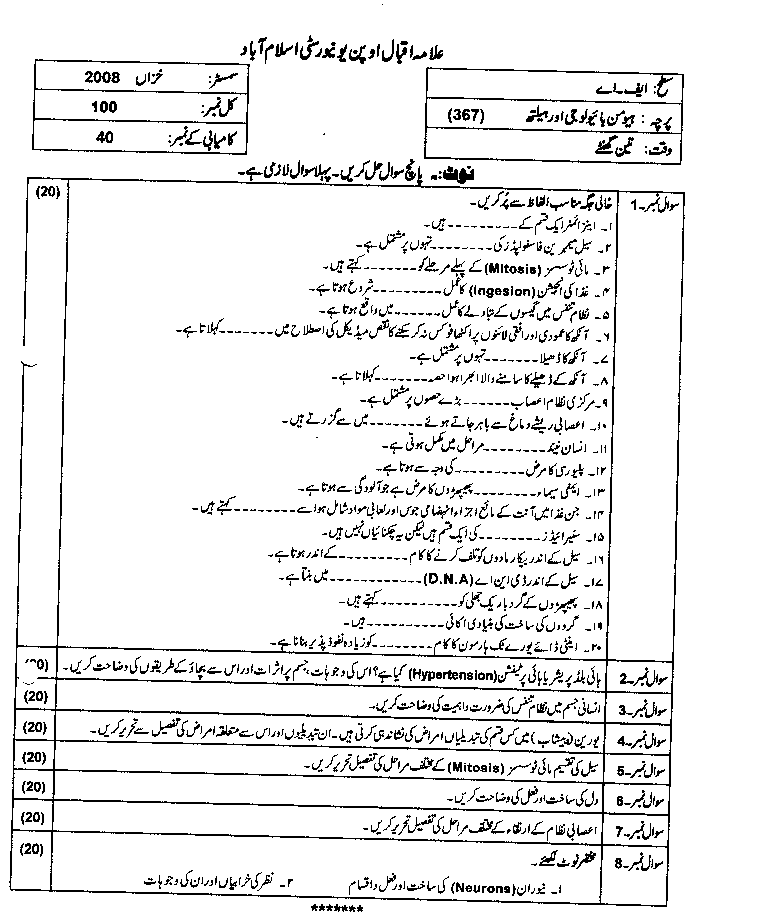 علامہ اقبال اوپن یونیورسٹی اسلام آباد
سطح: ایف۔اے
پرچہ: ہیومن بائیولوجی اور ہیلتھ (367)
وقت: تین گھنٹے
سمسٹر: خزاں 2008
کل نمبر: 100
کامیابی کے نمبر: 40
نوٹ:۔ پانچ سوال حل کریں۔ پہلا سوال لازمی ہے۔
سوال نمبر۔1 خالی جگہ مناسب الفاظ سے پُر کریں۔ (20)
۱۔ اینزائمز ایک قسم کے --------- ہیں۔
۲۔ سیل میمبرین فاسفولپڈز کی --------- تہوں پر مشتمل ہے۔
۳۔ مائی ٹوسسز (Mitosis) کے پہلے مرحلے کو ------- کہتے ہیں۔
۴۔ غذا کی انجیشن (Ingesion) کا عمل --------- شروع ہوتا ہے۔
۵۔ نظام تنفس میں گیسوں کے تبادلے کا عمل ------- میں واقع ہوتا ہے۔
۶۔ آنکھ کا عمودی اور افقی لائنوں پر اکٹھا فوکس نہ کر سکنے کا نقص میڈیکل کی اصطلاح میں ------- کہلاتا ہے۔
۷۔ آنکھ کا ڈھیلا --------- تہوں پر مشتمل ہے۔
۸۔ آنکھ کے ڈھیلے کا سامنے والا ابھرا ہوا حصہ -------- کہلاتا ہے۔
۹۔ مرکزی نظام اعصاب -------- بڑے حصوں پر مشتمل ہے۔
۱۰۔ اعصابی ریشے دماغ سے باہر جاتے ہوئے -------- میں سے گزرتے ہیں۔
۱۱۔ انسان نیند --------- مراحل میں مکمل ہوتی ہے۔
۱۲۔ پلیورسی کا مرض --------- کی وجہ سے ہوتا ہے۔
۱۳۔ ایمفی سیماء --------- پھیپھڑوں کا مرض ہے جو آلودگی سے ہوتا ہے۔
۱۴۔ جن غذا میں آنت کے مائع اجزاء انہضامی جوس اور لعابی مواد شامل ہو اسے --------- کہتے ہیں۔
۱۵۔ سٹیرائیڈز --------- کی ایک قسم ہیں لیکن یہ چکنائیاں نہیں ہیں۔
۱۶۔ سیل کے اندر بیکار مادوں کو تلف کرنے کا کام --------- کے اندر ہوتا ہے۔
۱۷۔ سیل کے اندر ڈی این اے (D.N.A) ----------- میں بنتا ہے۔
۱۸۔ پھیپھڑوں کے گرد باریک جھلی کو --------- کہتے ہیں۔
۱۹۔ گردوں کی ساخت کی بنیادی اکائی ---------- ہیں۔
۲۰۔ اینٹی ڈائے یورے ٹک ہارمون کا کام ---------- کو زیادہ نفوذ پذیر بنانا ہے۔
سوال نمبر۔2 ہائی بلڈ پریشر یا ہائی پرٹینشن (Hypertension) کیا ہے؟ اس کی وجوہات، جسم پر اثرات اور اس سے بچاؤ کے طریقوں کی وضاحت کریں۔
سوال نمبر۔3 انسانی جسم میں نظام تنفس کی ضرورت و اہمیت کی وضاحت کریں۔ (20)
سوال نمبر۔4 یورین (پیشاب) میں کس قسم کی تبدیلیاں امراض کی نشاندہی کرتی ہیں۔ ان تبدیلیوں اور اس سے متعلقہ امراض کی تفصیل سے تحریر کریں۔ (20)
سوال نمبر۔5 سیل کی تقسیم مائی ٹوسسز (Mitosis) کے مختلف مراحل کی تفصیل تحریر کریں۔ (20)
سوال نمبر۔6 دل کی ساخت اور فعل کی وضاحت کریں۔ (20)
سوال نمبر۔7 اعصابی نظام کے ارتقاء کے مختلف مراحل کی تفصیل تحریر کریں۔ (20)
سوال نمبر۔8 مختصر نوٹ لکھئے۔ (20)
۱۔ نیوران (Neurons) کی ساخت اور فعل و اقسام ۲۔ نظر کی خرابیاں اور ان کی وجوہات
*******